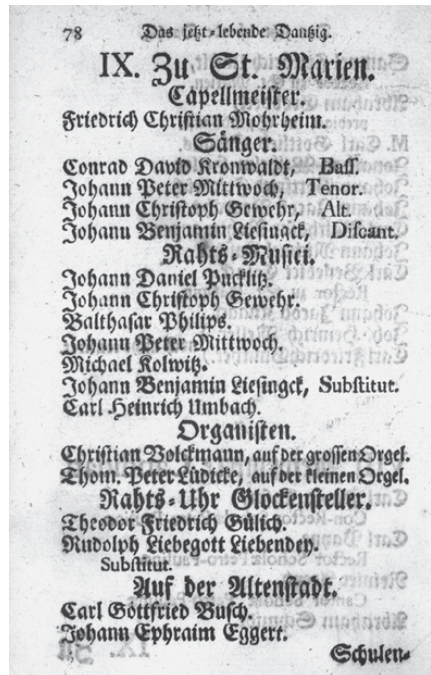 78 Das jetzt-lebende Dantzig.
IX. Zu St. Marien.
Capellmeister.
Friedrich Christian Mohrheim.
Sänger.
Conrad David Kronwaldt, Bass.
Johann Peter Mittwoch, Tenor.
Johann Christoph Gewehr, Alt.
Johann Benjamin Liesingck, Discant.
Rahts-Musici.
Johann Daniel Pucklitz.
Johann Christoph Gewehr.
Balthasar Philips.
Johann Peter Mittwoch.
Michael Kolwitz.
Johann Benjamin Liesingck, Substitut.
Carl Heinrich Umbach.
Organisten.
Christian Volckmann, auf der grossen Orgel.
Thom. Peter Lüdicke, auf der kleinen Orgel.
Rahts-Uhr Glockensteller.
Theodor Friedrich Gülich.
Rudolph Liebegott Liebendey.
Substitut.
Auf der Altenstadt.
Carl Gottfried Busch.
Johann Ephraim Eggert.
Schulen-